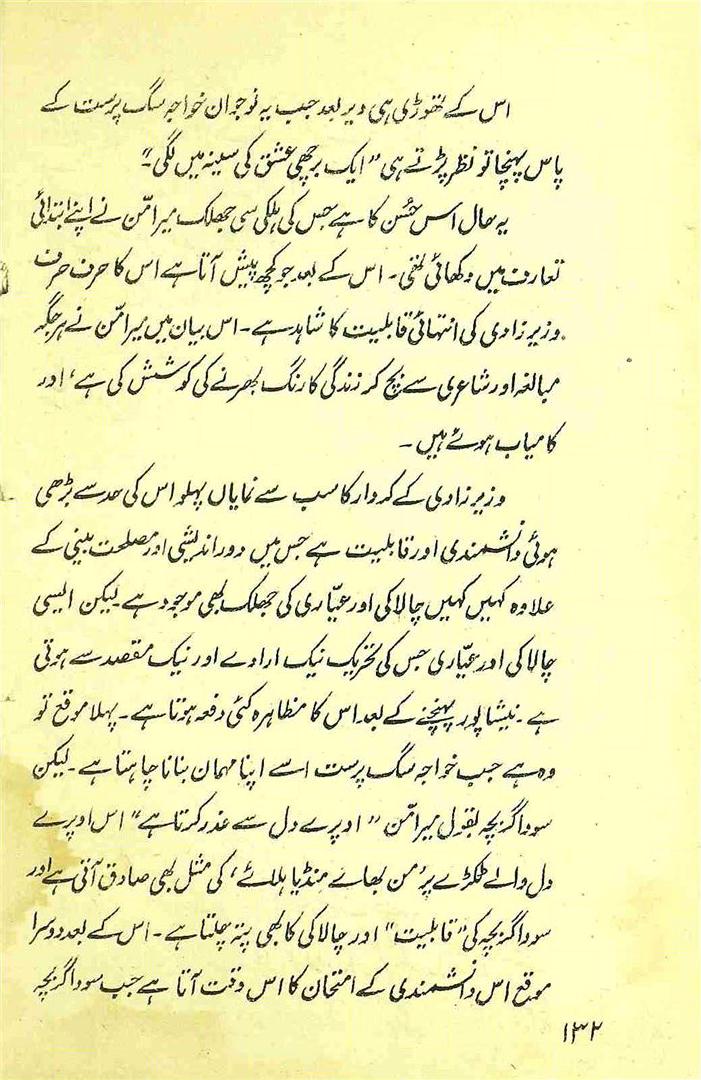 اس کے تھوڑی ہی دیر بعد جب یہ نوجوان خواجہ سگ پرست کے
پاس پہنچا تو نظر پڑتے ہی ”ایک برچھی عشق کی سینہ میں لگی۔“
یہ حال اس حُسن کا ہے جس کی ہلکی سی جھلک میرامّن نے اپنے ابتدائی
تعارف میں دکھائی تھی۔ اس کے بعد جو کچھ پیش آتا ہے اس کا حرف حرف
وزیرزادی کی انتہائی قابلیت کا شاہد ہے۔ اس بیان میں میرامّن نے ہر جگہ
مبالغہ اور شاعری سے بچ کر زندگی کا رنگ بھرنے کی کوشش کی ہے، اور
کامیاب ہوئے ہیں۔
وزیرزادی کے کردار کا سب سے نمایاں پہلو اس کی حد سے بڑھی
ہوئی دانشمندی اور قابلیت ہے جس میں دور اندیشی اور مصلحت بینی کے
علاوہ کہیں کہیں چالاکی اور عیّاری کی جھلک بھی موجود ہے۔ لیکن ایسی
چالاکی اور عیّاری جس کی تحریک نیک ارادے اور نیک مقصد سے ہوتی
ہے۔ نیشاپور پہنچنے کے بعد اس کا مظاہرہ کئی دفعہ ہوتا ہے۔ پہلا موقع تو
وہ ہے جب خواجہ سگ پرست اسے اپنا مہمان بنانا چاہتا ہے۔ لیکن
سوداگر بچہ بقول میرامّن ”اوپرے دل سے عذر کرتا ہے“ اس اوپرے
دل والے ٹکڑے پر ’مُن بھائے منڈیا ہلائے‘ کی مثل بھی صادق آتی ہے اور
سوداگر بچہ کی ”قابلیت“ اور چالاکی کا بھی پتہ چلتا ہے۔ اس کے بعد دوسرا
موقع اس دانشمندی کے امتحان کا اس وقت آتا ہے جب سوداگر بچہ
۱۳۲